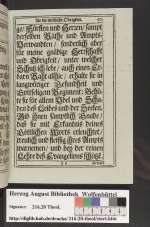 Für die weltliche Obrigkeit.
ge/ Fürsten und Herren/ sampt
derselben Räthe und Ampts-
Verwandten / sonderlich aber
für meine gnädige Herrschafft
und Obrigkeit / unter welcher
Schutz ich lebe / auch einen
Rath allhie / erhalte sie in
langwieriger Gesundheit und
Regiment: Behü-
te sie für allem Übel und Scha-
den des Leibes und der Seelen.
Gib ihnen sämptlich Gnade/
daß sie mit Erkäntnis deines
Göttlichen Worts erleuchtet/
treulich und fleissig ihres Ampts
wahrnemen/ und bey der reinen
Lehre des Evangeliums
Herzog August Bibliothek Wolfenbüttel
Signatur: 216.28 Theol.
http://diglib.hab.de/drucke/216-28-theol/start.htm